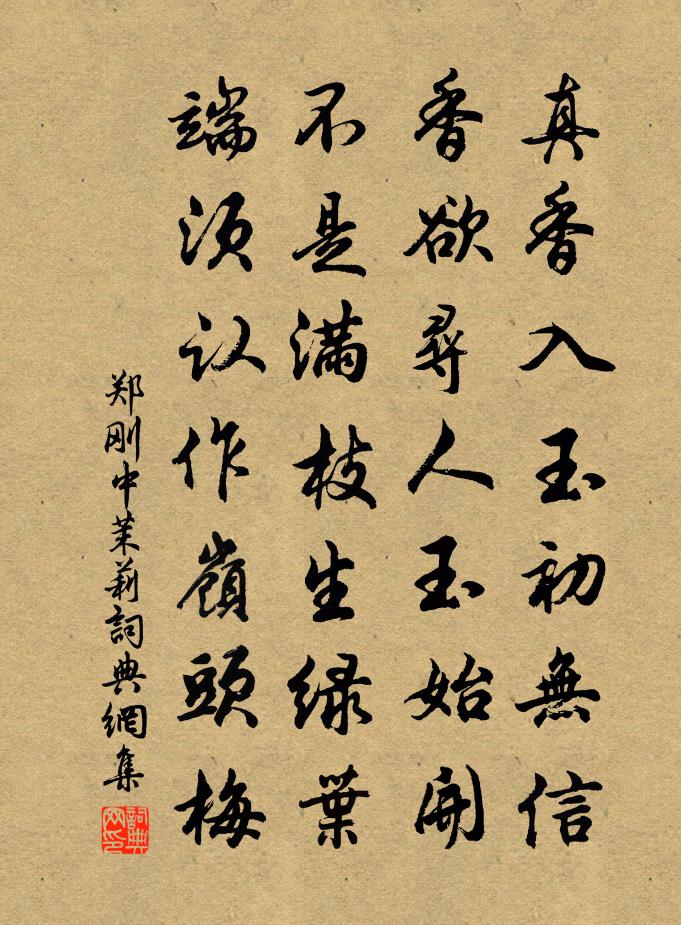 真香入玉初無信
香欲尋人玉始開
不是满枝生绿葉
端须认作嶺頭梅
郑刚中茉莉詞典網集
詞典网印